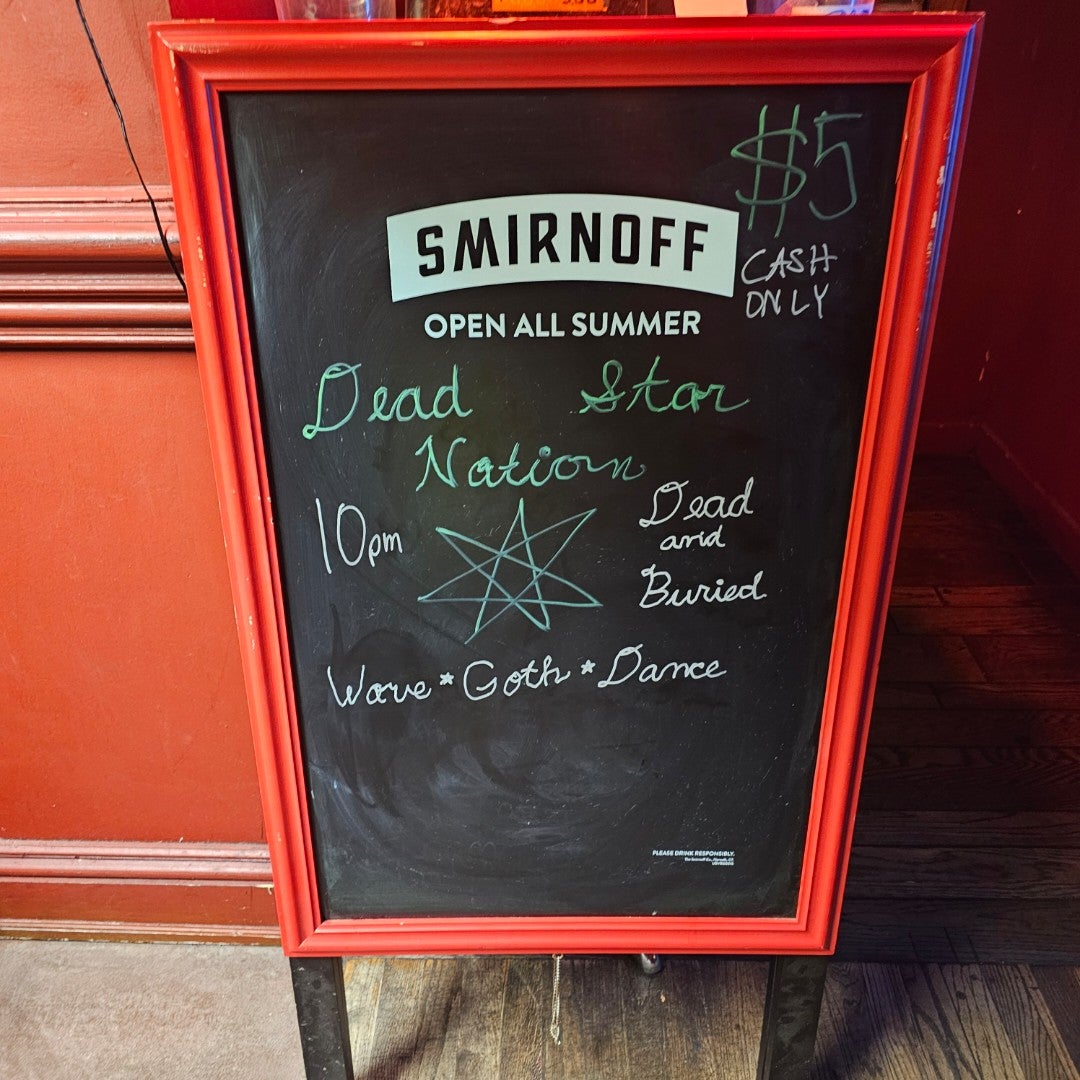 $5
SMIRNOFF
CASH
ONLY
OPEN ALL SUMMER
Dead Star
Nation
10pm
Dead
and
Buried
Wave * Goth * Dance
PLEASE DRINK RESPONSIBLY.